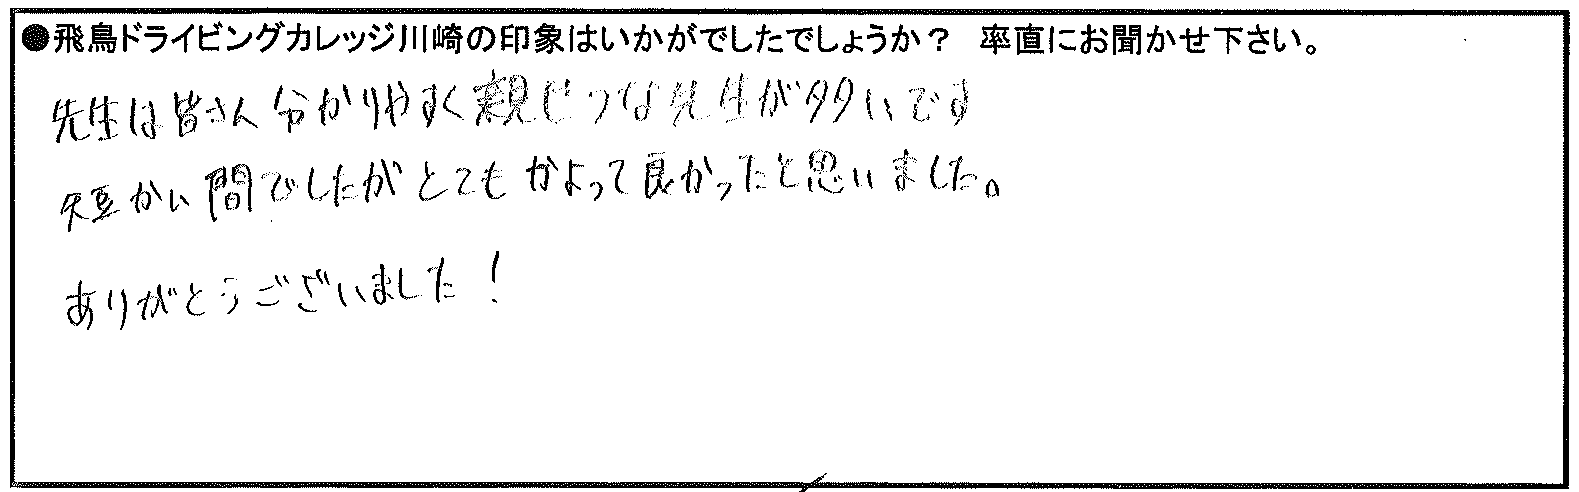 ●飛鳥ドライビングカレッジ川崎の印象はいかがでしたでしょうか？　率直にお聞かせ下さい。
先生は皆さん分かりやすく親せつな先生が多いです
短かい間でしたがとてもかよって良かったと思いました。
ありがとうございました！